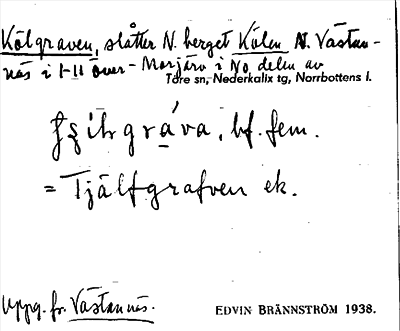 Kölgraven, slåtter N. berget Kölen N. Västan-
näs i 1-11 Över-Morjärv i NO delen av
Töre sn, Nederkalix tg, Norrbottens l.
grava, bf. fem.
= Tjälfgrafven ek.
Uppg. fr. Västannäs.
EDVIN BRÄNNSTRÖM 1938.